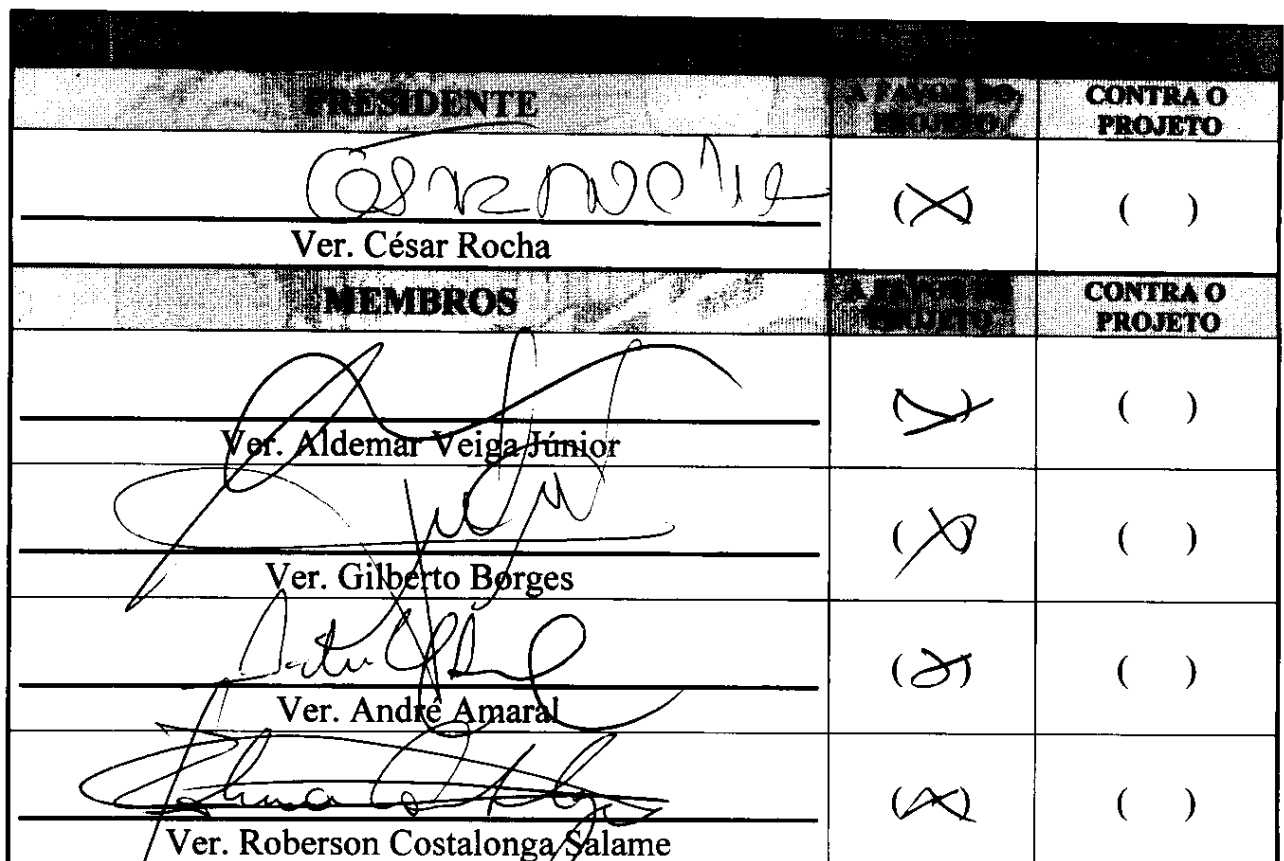 PRESIDENTE A FAVOR DO CONTRA O
PROJETO PROJETO
( X ) ( )
Ver. César Rocha
MEMBROS A FAVOR DO CONTRA O
PROJETO PROJETO
( X ) ( )
Ver. Aldemar Veiga Júnior
( X ) ( )
Ver. Gilberto Borges
( X ) ( )
Ver. André Amaral
( X ) ( )
Ver. Roberson Costalonga Salame